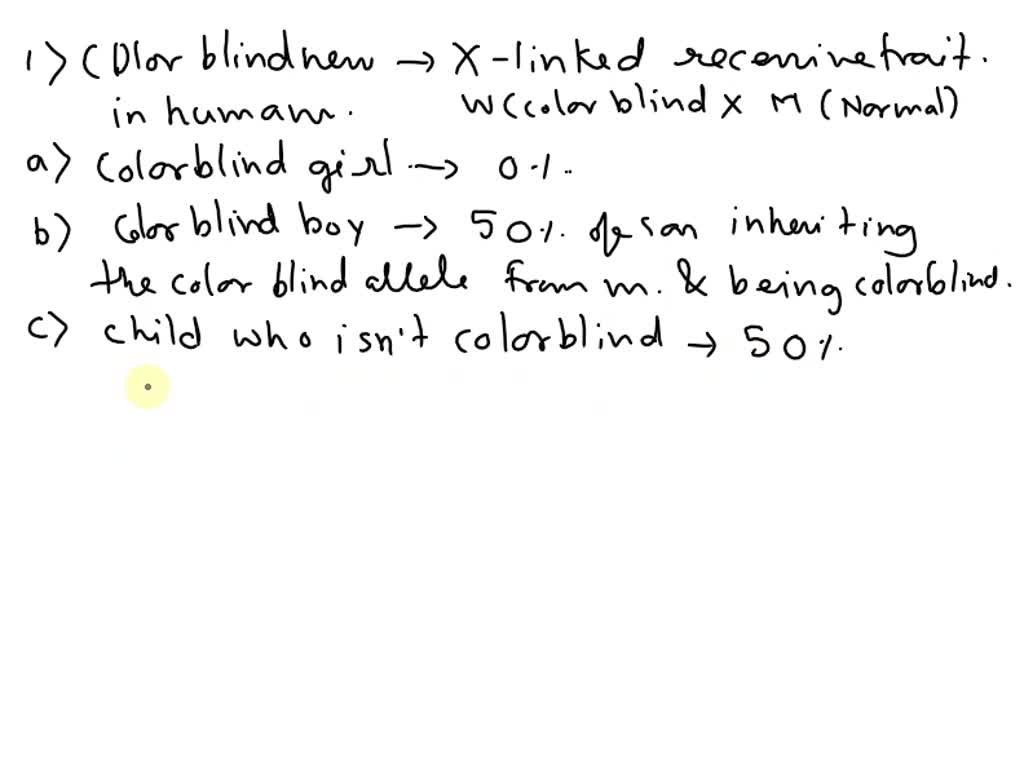 1) Color blindness → X-linked recessive trait.
in human. W(color blind X M (Normal)
a) Colorblind girl → 0%.
b) Color blind boy → 50% of son inheriting
the color blind allele from m. & being colorblind.
c) child who isn't colorblind → 50%.